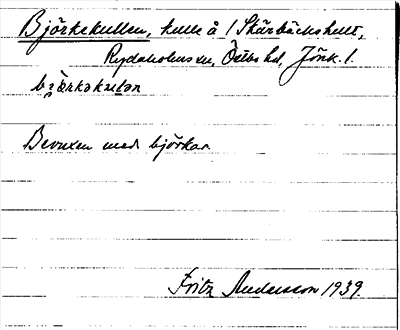 Björkekullen, kulle å 1 Skärbäckshult,
Rydaholms sn, Östbo hd, Jönk. l.
bjärkakulan
Bevuxen med björkar
Fritz Andersson 1939